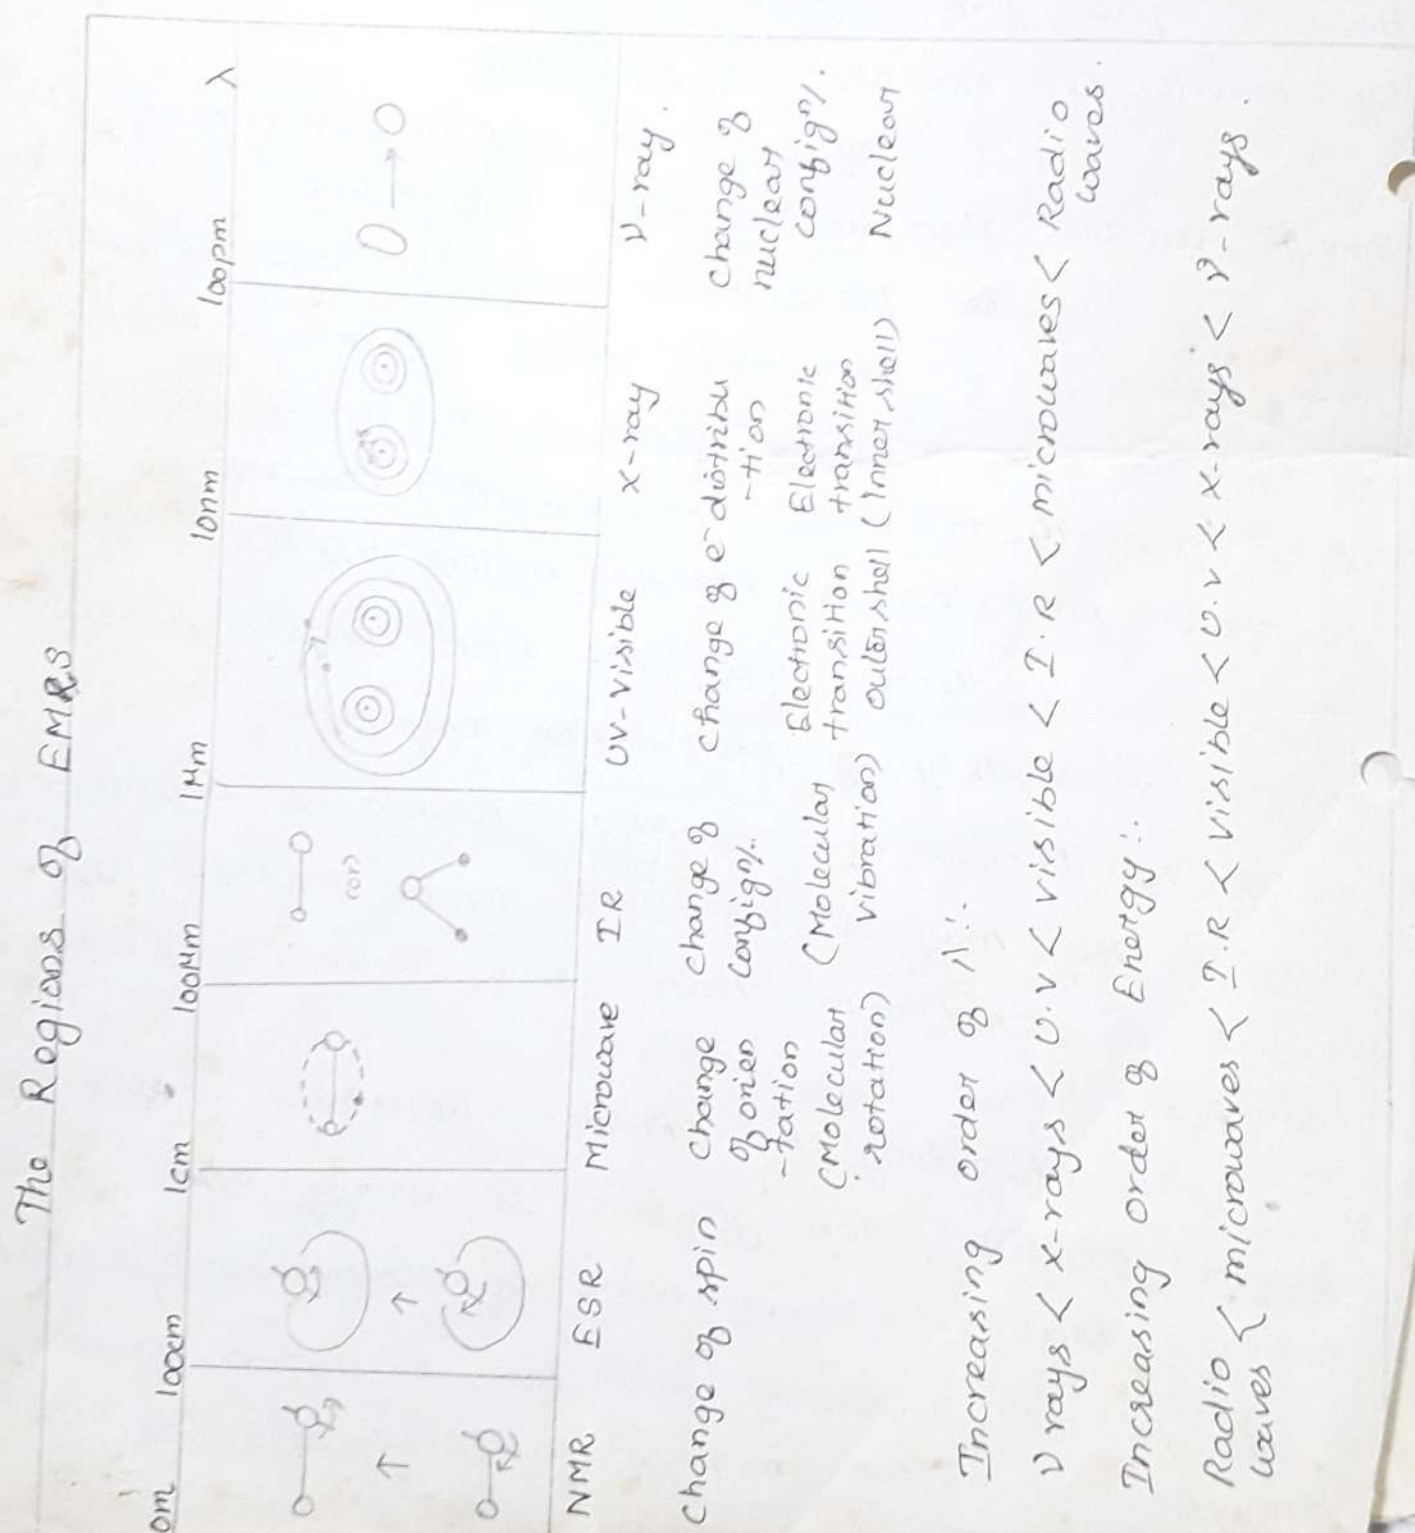 The Regions of EMRS
0m 100cm 1cm 100μm 1μm 10nm 100pm λ
(or)
NMR ESR Microwave IR UV-Visible X-ray ν-ray.
Change of spin Change of orien -tation (Molecular rotation)
Change of config^n/. (Molecular vibration)
Change of e⁻ distribu -tion
Electronic transition outershell
Electronic transition (Inner shell)
Change of nuclear config^n/. Nuclear
Increasing order of λ:.
ν rays < x-rays < U.V < visible < I.R < microwaves < Radio waves.
Increasing order of Energy:.
Radio waves < microwaves < I.R < visible < U.V < x-rays < ν-rays.